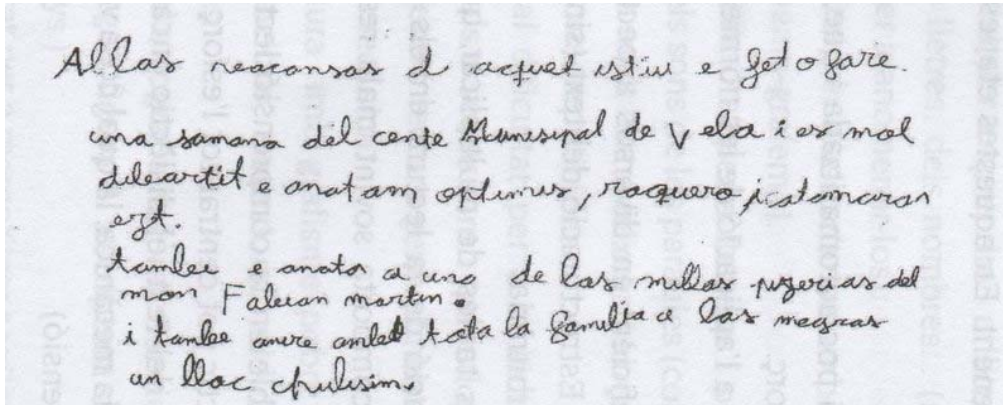 Allas reacansas d aquet istiu e fet o fare.
una samana del cente Munisipal de Vela i es mol
dibeartit e anat am optimis, raquero i catamaran
ezt.
tambe e anat a una de las millas pizerias del
mon Faleian martin.
i tambe anire ambt tota la familia a las megras
un lloc chulisim.